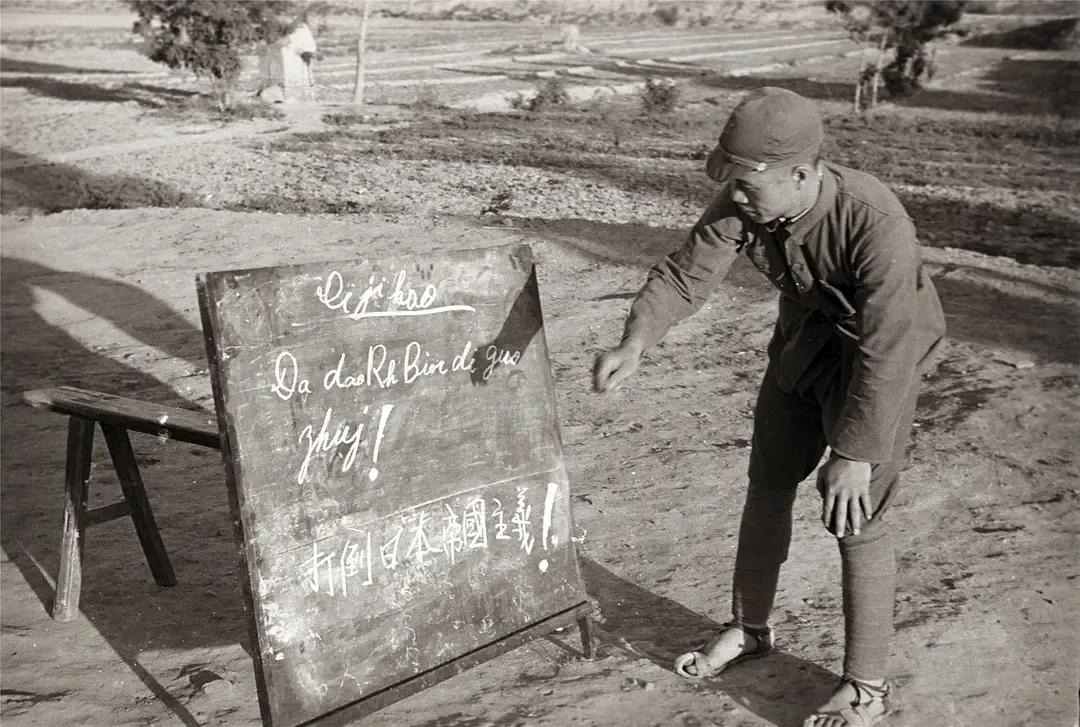 Di ji kao
Da dao Rh Bion di guo
zhuj!
打倒日本帝國主義!